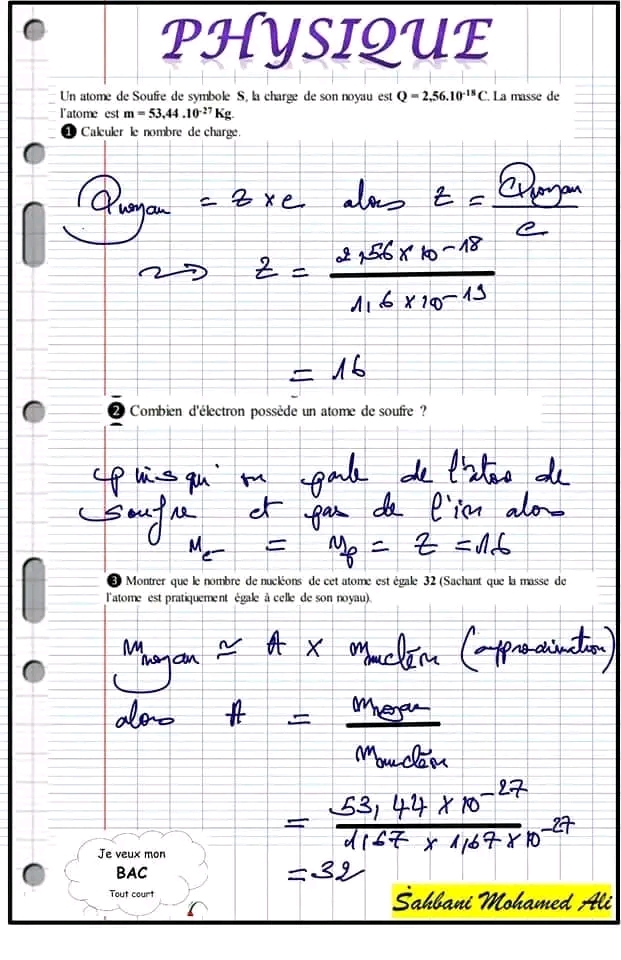 PHYSIQUE
Un atome de Soufre de symbole S, la charge de son noyau est Q = 2,56.10⁻¹⁸ C. La masse de
l'atome est m = 53,44 .10⁻²⁷ Kg.
1 Calculer le nombre de charge.
Qnoyau = Z × e alors Z = Qnoyau / e
Z = 2,56 × 10⁻¹⁸ / 1,6 × 10⁻¹⁹
= 16
2 Combien d'électron possède un atome de soufre ?
puisqu' on parle de l'atome de
soufre et pas de l'ion alors
Ne- = Np = Z = 16
3 Montrer que le nombre de nucléons de cet atome est égale 32 (Sachant que la masse de
l'atome est pratiquement égale à celle de son noyau).
mnoyau ≃ A × mnucléon (approximation)
alors A = mnoyau / mnucléon
= 53,44 × 10⁻²⁷ / 1,67 × 1,67 × 10⁻²⁷
= 32
Je veux mon
BAC
Tout court
Sahbani Mohamed Ali